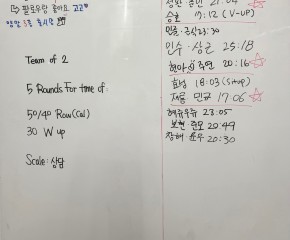 팔로우랑 좋아요
Team of 2
5 Rounds For time of:
50/40 Row(Cal)
30 W up
Scale: 상담
21:04
승호 17:12 (V-up)
23:30
인수·상근 25:18
현아 주연 20:16
효성 18:03 (Situp)
재룡 민규 17:06
23:05
보현 준모 20:49
창해 윤우 20:30